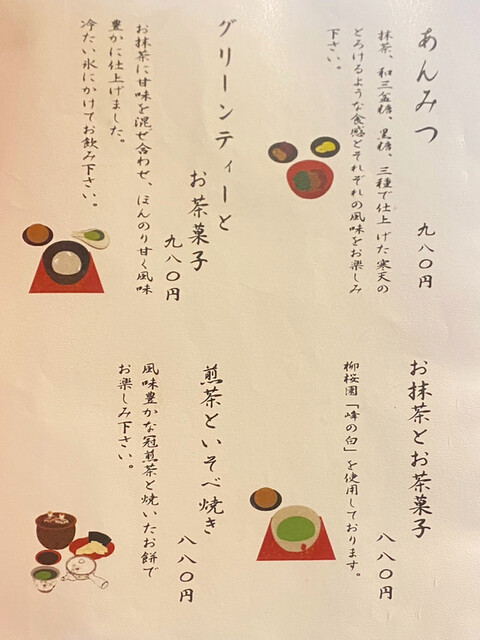 あんみつ
九八〇円
抹茶、和三盆糖、黒糖、三種で仕上げた寒天の
とろけるような食感とそれぞれの風味をお楽しみ
下さい。
グリーンティーと
お茶菓子
九八〇円
お抹茶に甘味を混ぜ合わせ、ほんのり甘く風味
豊かに仕上げました。
冷たい氷にかけてお飲み下さい。
お抹茶とお茶菓子
八八〇円
柳桜園「峰の白」を使用しております。
煎茶といそべ焼き
八八〇円
風味豊かな冠煎茶と焼いたお餅で
お楽しみ下さい。